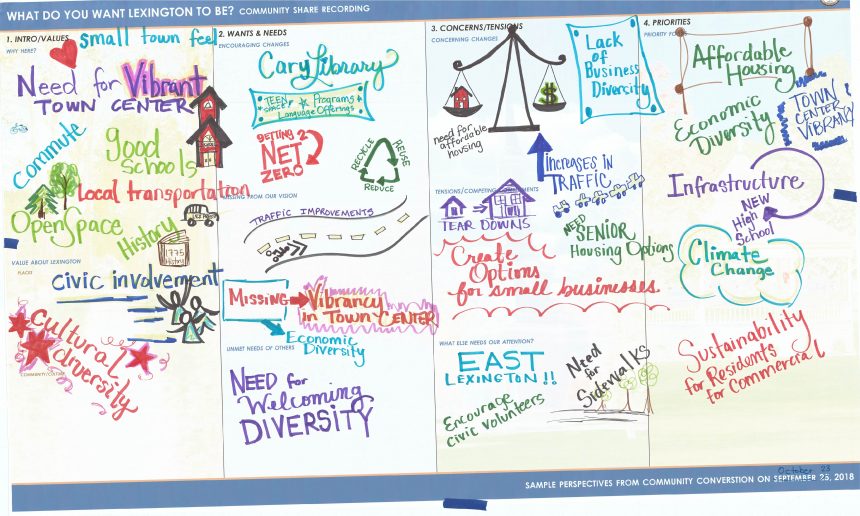 WHAT DO YOU WANT LEXINGTON TO BE? COMMUNITY SHARE RECORDING
1. INTRO/VALUES
WHY HERE?
small town feel
Need for Vibrant
TOWN CENTER
Commute
good
Schools
Local transportation
Open Space
History
1775
History
VALUE ABOUT LEXINGTON
PLACES
Civic involvement
Cultural
diversity
COMMUNITY/CULTURE
2. WANTS & NEEDS
ENCOURAGING CHANGES
Cary Library
TEEN
SPACE
Programs
Language Offerings
GETTING 2
NET
ZERO
RECYCLE
REUSE
REDUCE
MISSING FROM OUR VISION
TRAFFIC IMPROVEMENTS
MISSING
Vibrancy
in Town CENTER
Economic
Diversity
UNMET NEEDS OF OTHERS
NEED for
Welcoming
DIVERSITY
3. CONCERNS/TENSIONS
CONCERNING CHANGES
$
need for
affordable
housing
Lack
of
Business
Divercity
INCREASES IN
TRAFFIC
TENSIONS/COMPETING COMMITMENTS
TEAR DOWNS
NEED
SENIOR
Housing Options
Create
Options
for small businesses
WHAT ELSE NEEDS OUR ATTENTION?
EAST
LEXINGTON!!
Encourage
civic volunteers
Need
for
Sidewalks
4. PRIORITIES
Affordable
Housing
Economic
Diversity
TOWN
CENTER
VIBRANCY
Infrastructure
NEW
High
School
Climate
Change
Sustainability
for Residents
for Commercial
October 23
SAMPLE PERSPECTIVES FROM COMMUNITY CONVERSTION ON SEPTEMBER 25, 2018